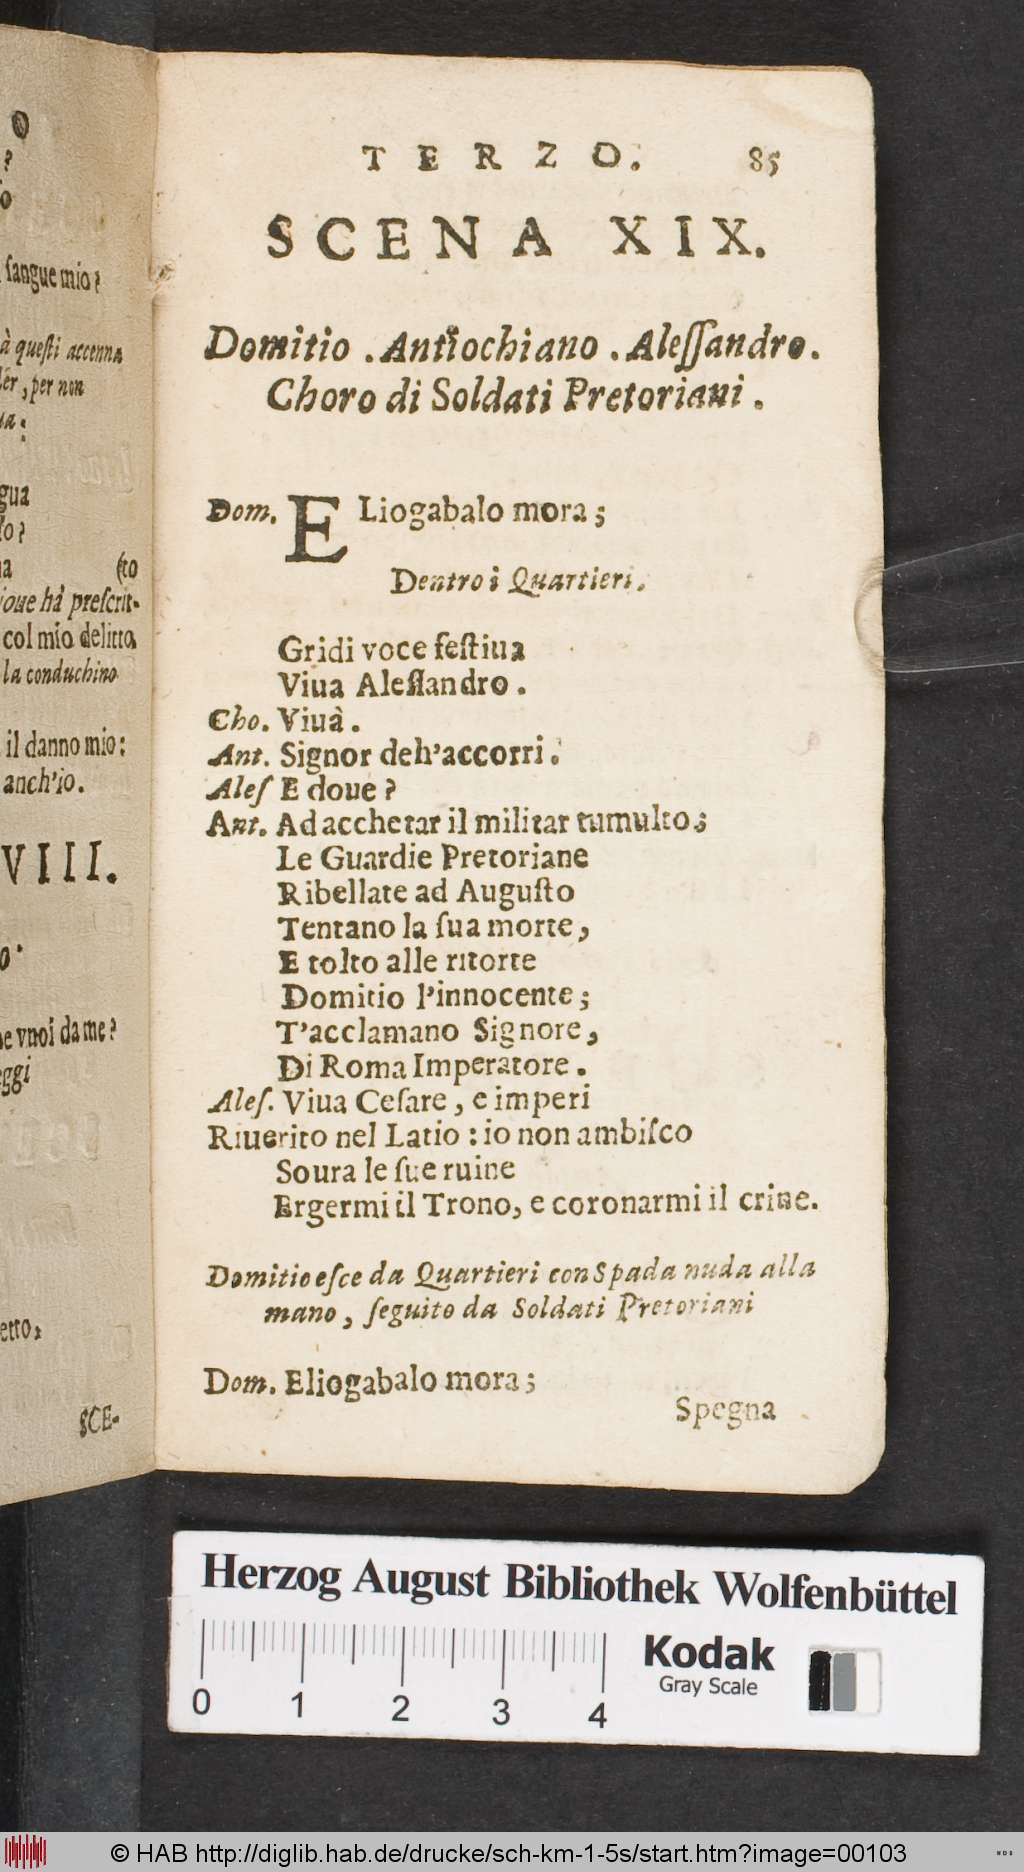 O
?
o
sangue mio?
à questi accenna
der, per non
ua:
gua
lo?
na (to
ioue hà prescrit-
col mio delitto
la conduchino
il danno mio:
anch'io.
VIII.
o.
he vuoi da me?
eggi
etto,
SCE-
TERZO. 85
SCENA XIX.
Domitio . Antiochiano . Alessandro.
Choro di Soldati Pretoriani .
Dom. ELiogabalo mora;
Dentro i Quartieri.
Gridi voce festiua
Viua Alessandro.
Cho. Viuà.
Ant. Signor deh'accorri.
Ales E doue?
Ant. Ad acchetar il militar tumulto;
Le Guardie Pretoriane
Ribellate ad Augusto
Tentano la sua morte,
E tolto alle ritorte
Domitio l'innocente;
T'acclamano Signore,
Di Roma Imperatore.
Ales. Viua Cesare, e imperi
Riuerito nel Latio: io non ambisco
Soura le sue ruine
Ergermi il Trono, e coronarmi il crine.
Domitio esce da Quartieri con Spada nuda alla
mano, seguito da Soldati Pretoriani
Dom. Eliogabalo mora;
Spegna
Herzog August Bibliothek Wolfenbüttel
0 1 2 3 4
Kodak
Gray Scale
© HAB http://diglib.hab.de/drucke/sch-km-1-5s/start.htm?image=00103